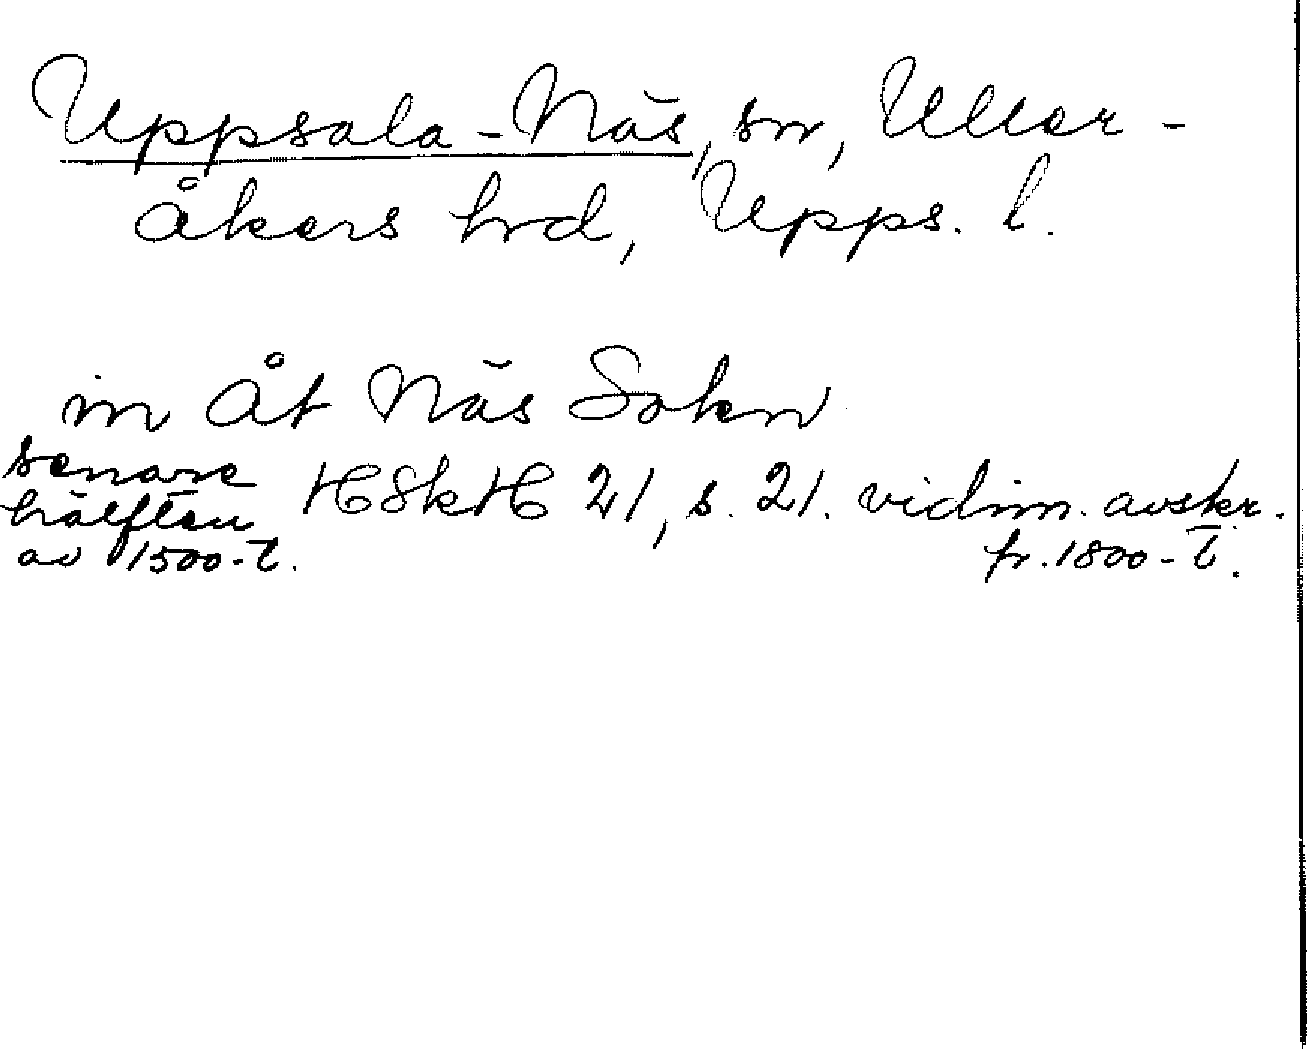 Uppsala-Näs, sn, Uller-
åkers hrd, Upps. l.
in åt Näs Sokn
senare hälften av 1500-t. HSkH 21, s. 21. vidim. avskr. fr. 1800-t.